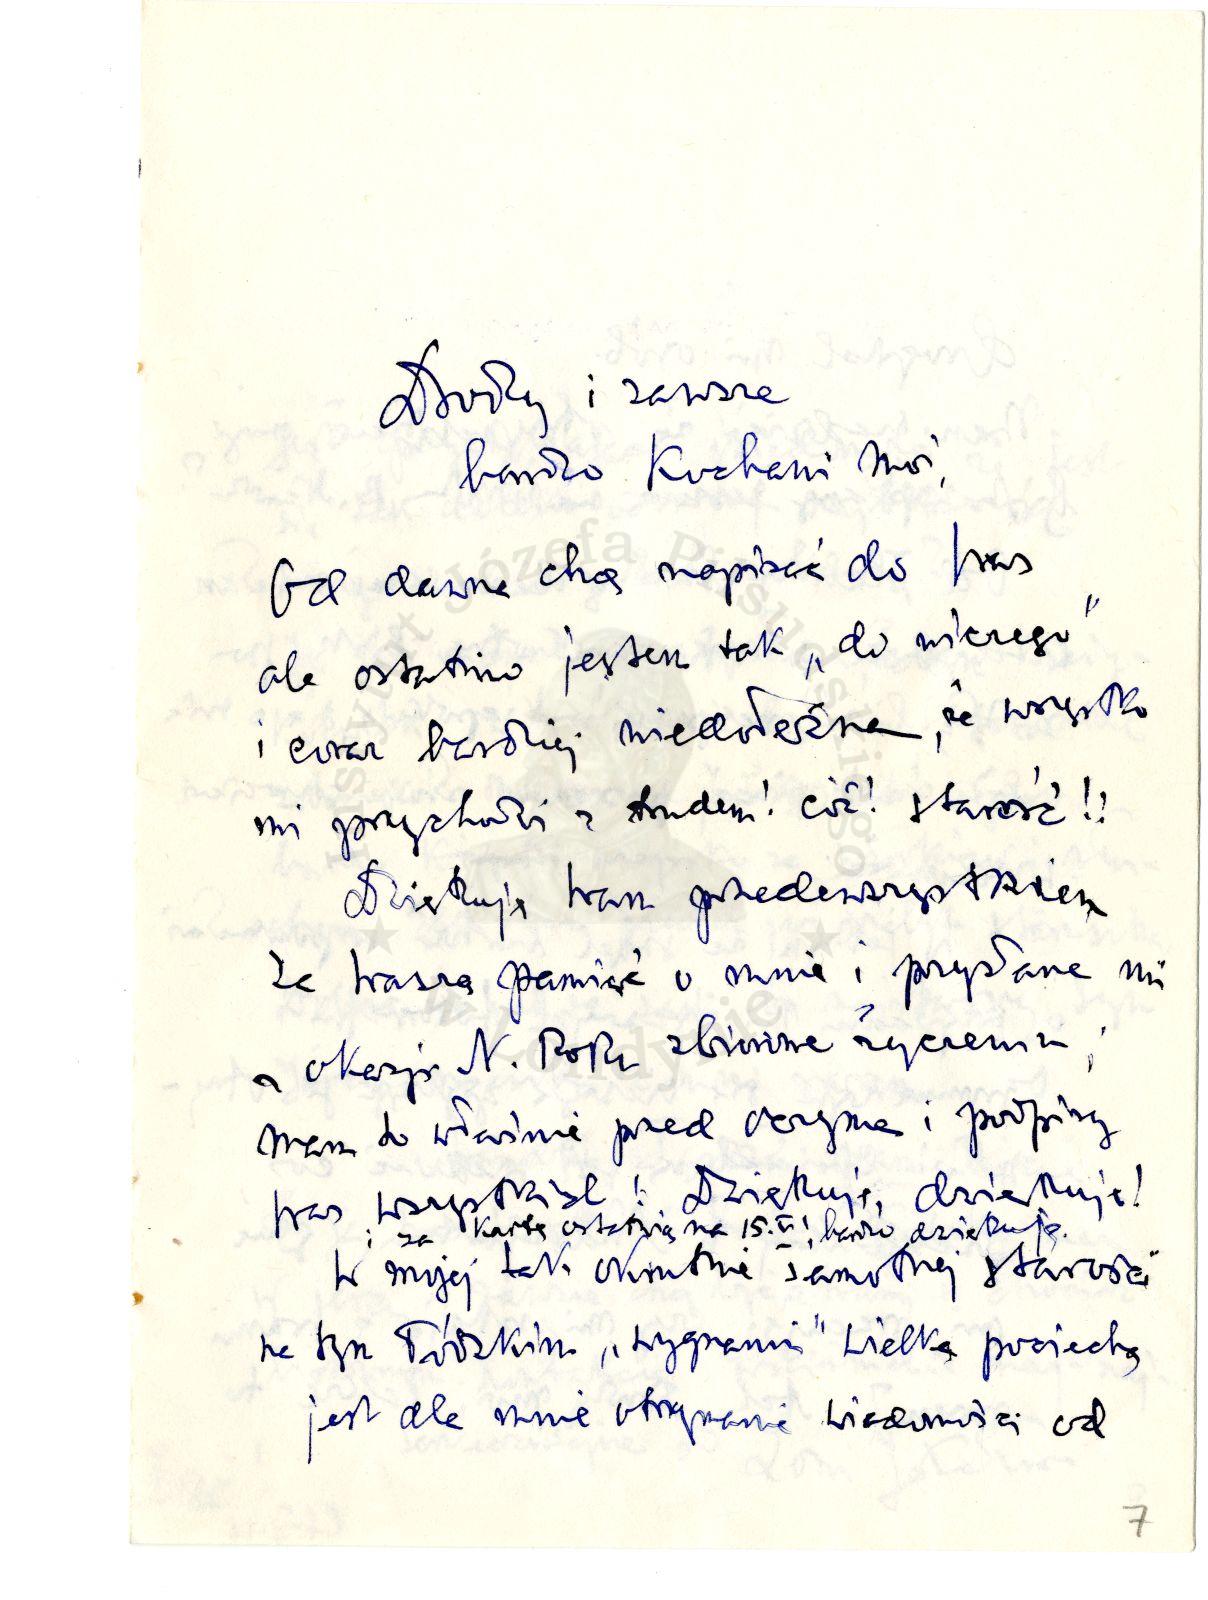 Drodzy i zawsze
bardzo Kochani Moi,
Od dawna chcę napisać do Was
ale ostatnio jestem tak „do niczego”
i coraz bardziej niedołężna, że wszystko
mi przychodzi z trudem! cóż! starość!!
Dziękuję Wam przedewszystkiem
za Waszą pamięć o mnie i przysłane mi
z okazji N. Roku zbiorowe życzenia;
mam to właśnie przed oczyma i podpisy
Was wszystkich! Dziękuję, dziękuję!
i za kartę ostatnią na 15.VI! bardzo dziękuję.
W mojej tak okrutnie samotnej starości
na tym Łódzkim „wygnaniu” wielką pociechą
jest dla mnie otrzymanie wiadomości od
7
Instytut Józefa Piłsudskiego
w Londynie